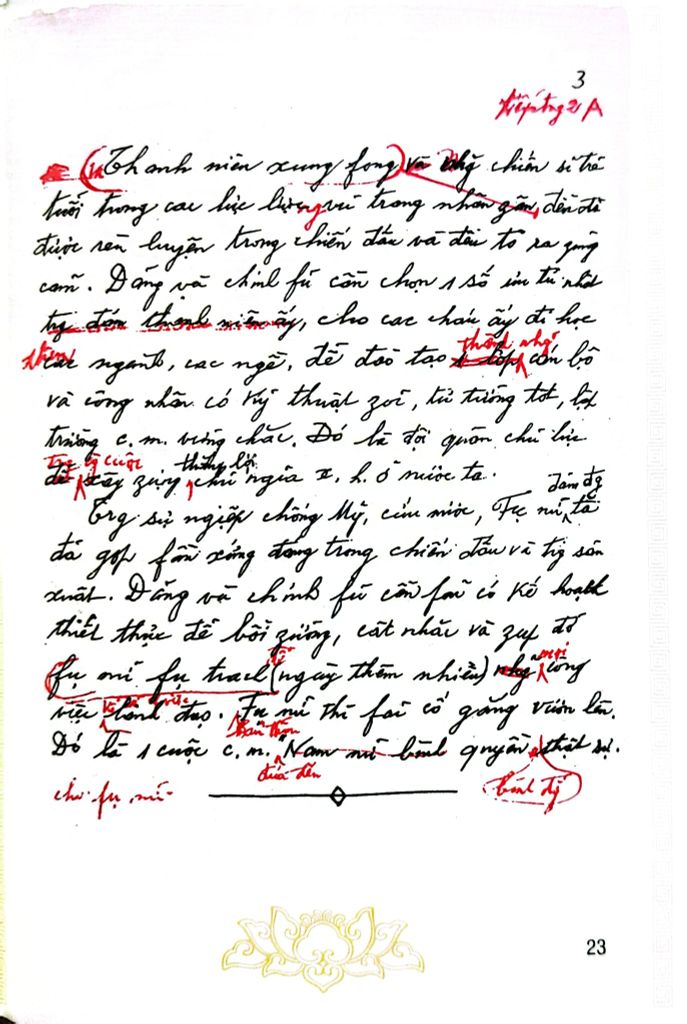 3
tiếp trg 2 A
Thanh niên xung fong và nhg chiến sĩ trẻ
tuổi trong các lực lượng vũ trang nhân zân, đều đã
được rèn luyện trong chiến đấu và đều tỏ ra zũng
cảm. Đảng và chính fủ cần chọn 1 số ưu tú nhất
trg đám thanh niên ấy, cho các cháu ấy đi học
thêm các ngành, các ngề, để đào tạo thành nhg cán bộ
và công nhân có kỹ thuật zỏi, tư tưởng tốt, lập
trường c.m. vững chắc. Đó là đội quân chủ lực
trg cuộc thắng lợi
để xây zựng chủ ngĩa x.h. ở nước ta.
đảm đg
Trg sự ngiệp chống Mỹ, cứu nước, Fụ nữ ta
đã góp fần xứng đáng trong chiến đấu và trg sản
xuất. Đảng và chính fủ cần fải có kế hoạch
thiết thực để bồi zưỡng, cất nhắc và zúp đỡ
để mọi
fụ nữ fụ trách (ngày thêm nhiều) nhg công
kể cả việc
việc lãnh đạo. Fụ nữ thì fải cố gắng vươn lên.
bản thân
Đó là 1 cuộc c.m. "Nam nữ bình quyền" thật sự.
đưa đến
cho fụ nữ bình đg
23